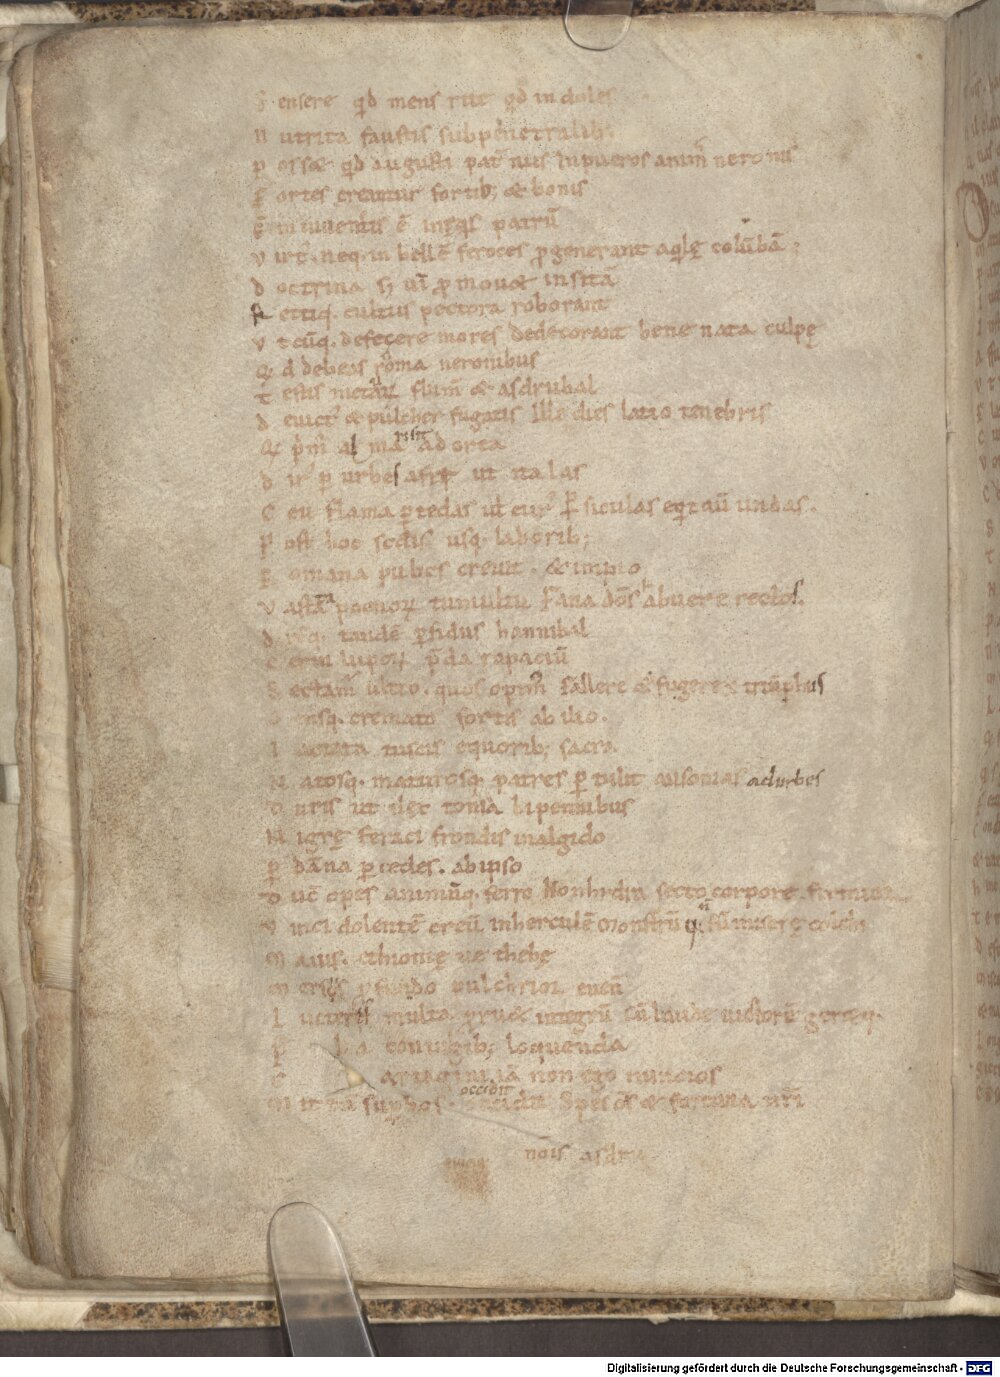 S ensere qd mens rite qd indoles
N utrita faustis sub penetralib;
P ossæ qd augusti pat'nus In pueros anim' neronis
F ortes creantur fortib; & bonis
E in iuuencis ē ineqis patrū
V irt'. neq. in bellē feroces pgenerant aqlę colūbā;
D octrina s; uī pmouet insitā
R ettiq. cultus pectora roborant
V tcūq. defecere mores Dedecorant bene nata culpę
Q d debeas roma neronibus
T estis metaur flum̄ & asdrubal
D euict' & pulcher fugatis Ille dies latio tenebris
Q i pm' alma risit adorta
D ir' p urbes afer ut italas
C eu flāma p tedas ut eur' P siculas eqtauit undas.
P ost hoc scdis usq. laborib;
R omana pubes creuit. & impio
V asta poenoꝝ tumultu Fana dōs habuere rectos.
D ixitq. tandē pfidus hannibal
C erui lupoꝝ pda rapaciū
S ectam' ultro. quos opim' fallere & fugere ē triūphus
G ensq. cremato fortis ab ilio.
I actata tuscis equorib; sacra.
N atosq. maturosq. patres p tulit ausonias ad urbes
D uris ut ilex tonsa bipennibus
N igrę feraci frondis in algido
P dāna p cedes. ab ipso
D uc opes animūq. ferro Non hydra secto corpore firmior
V inci dolentē creuit in herculē Monstrū q; sūmisere colchi
M aius. ethionię ue thebę
M erses pfundo pulchrior euen
L uctere multa pruet integrū Cū laude uictorē geretq.
P lia coniugib; loquenda
C artagini iā non ego nuncios
M ittā supbos. occidit occidit Spes ōs & fortuna nrī
nōis asdru